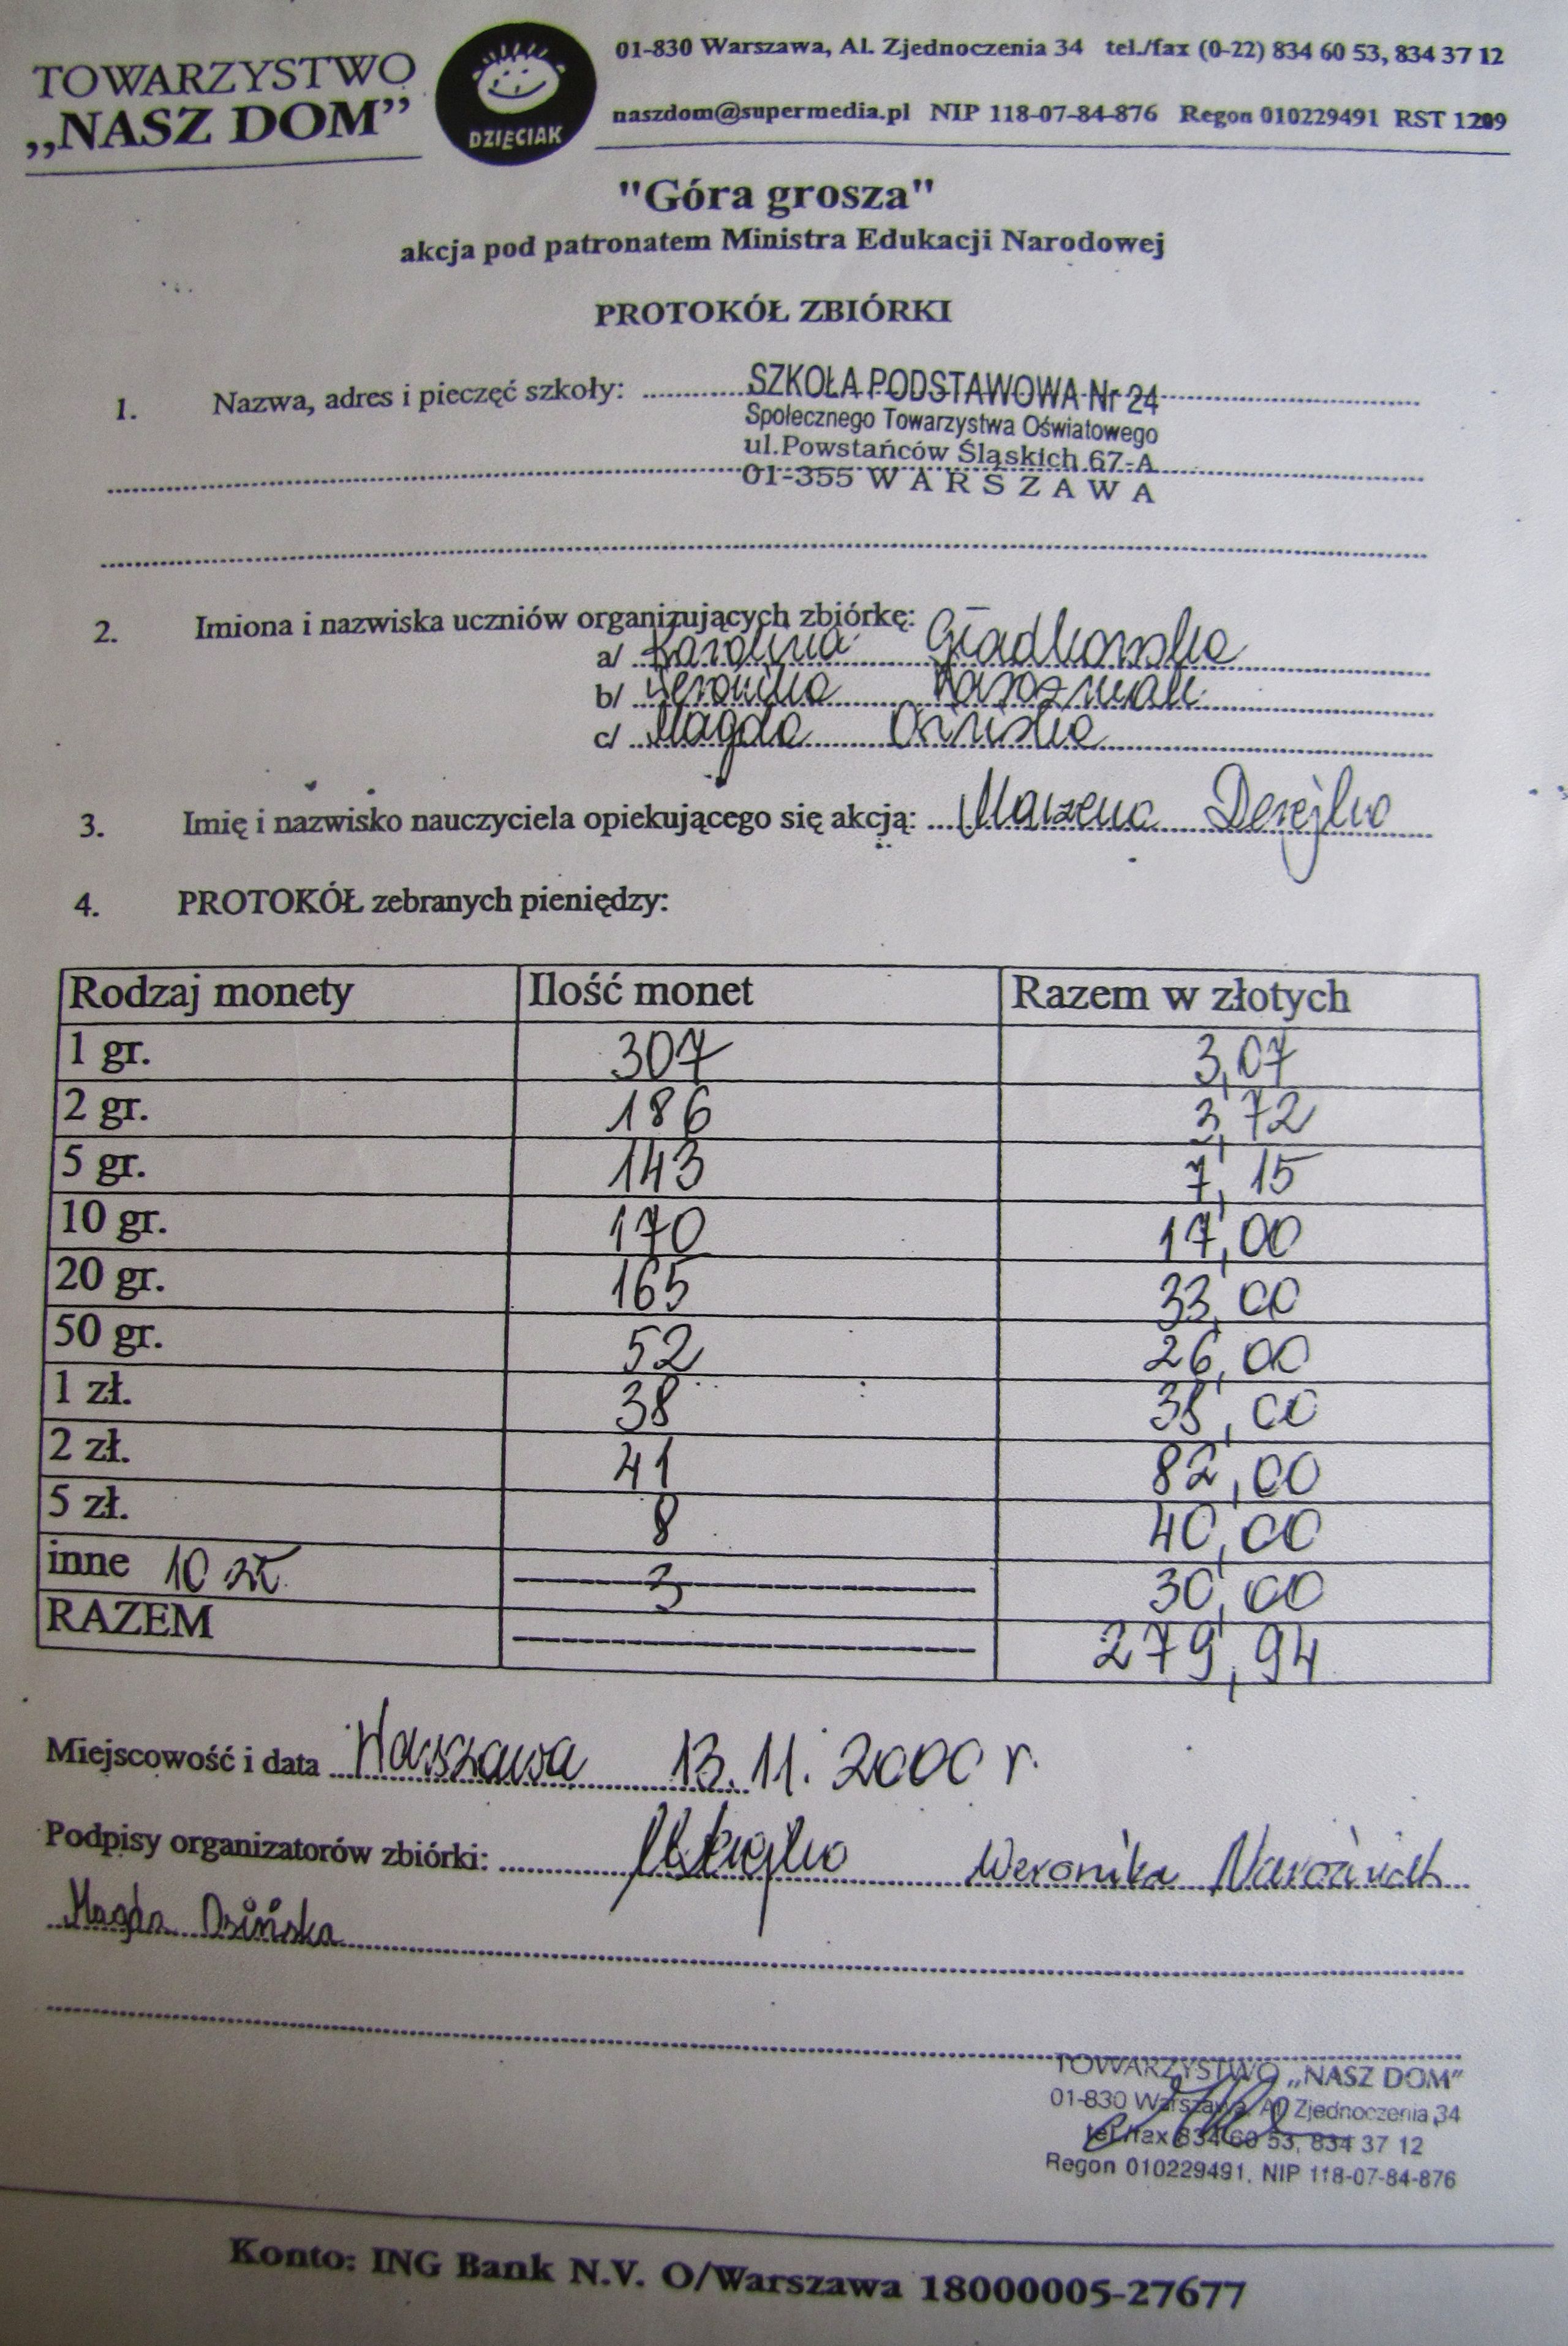 TOWARZYSTWO
„NASZ DOM”
DZIĘCIAK
01-830 Warszawa, Al. Zjednoczenia 34 tel./fax (0-22) 834 60 53, 834 37 12
naszdom@supermedia.pl NIP 118-07-84-876 Regon 010229491 RST 1209
"Góra grosza"
akcja pod patronatem Ministra Edukacji Narodowej
PROTOKÓŁ ZBIÓRKI
1. Nazwa, adres i pieczęć szkoły: SZKOŁA PODSTAWOWA Nr 24
Społecznego Towarzystwa Oświatowego
ul.Powstańców Śląskich 67-A
01-355 WARSZAWA
2. Imiona i nazwiska uczniów organizujących zbiórkę:
a/ Karolina Gładkowska
b/ Weronika
c/ Magda Osińska
3. Imię i nazwisko nauczyciela opiekującego się akcją: Marzena
4. PROTOKÓŁ zebranych pieniędzy:
Rodzaj monety Ilość monet Razem w złotych
1 gr. 307 3,07
2 gr. 186 3,72
5 gr. 143 7,15
10 gr. 170 17,00
20 gr. 165 33,00
50 gr. 52 26,00
1 zł. 38 38,00
2 zł. 41 82,00
5 zł. 8 40,00
inne 10 zł 3 30,00
RAZEM 279,94
Miejscowość i data Warszawa 13.11.2000 r.
Podpisy organizatorów zbiórki: Weronika
Magda Osińska
TOWARZYSTWO „NASZ DOM”
01-830 Warszawa, Al. Zjednoczenia 34
tel./fax 834 60 53, 834 37 12
Regon 010229491, NIP 118-07-84-876
Konto: ING Bank N.V. O/Warszawa 18000005-27677